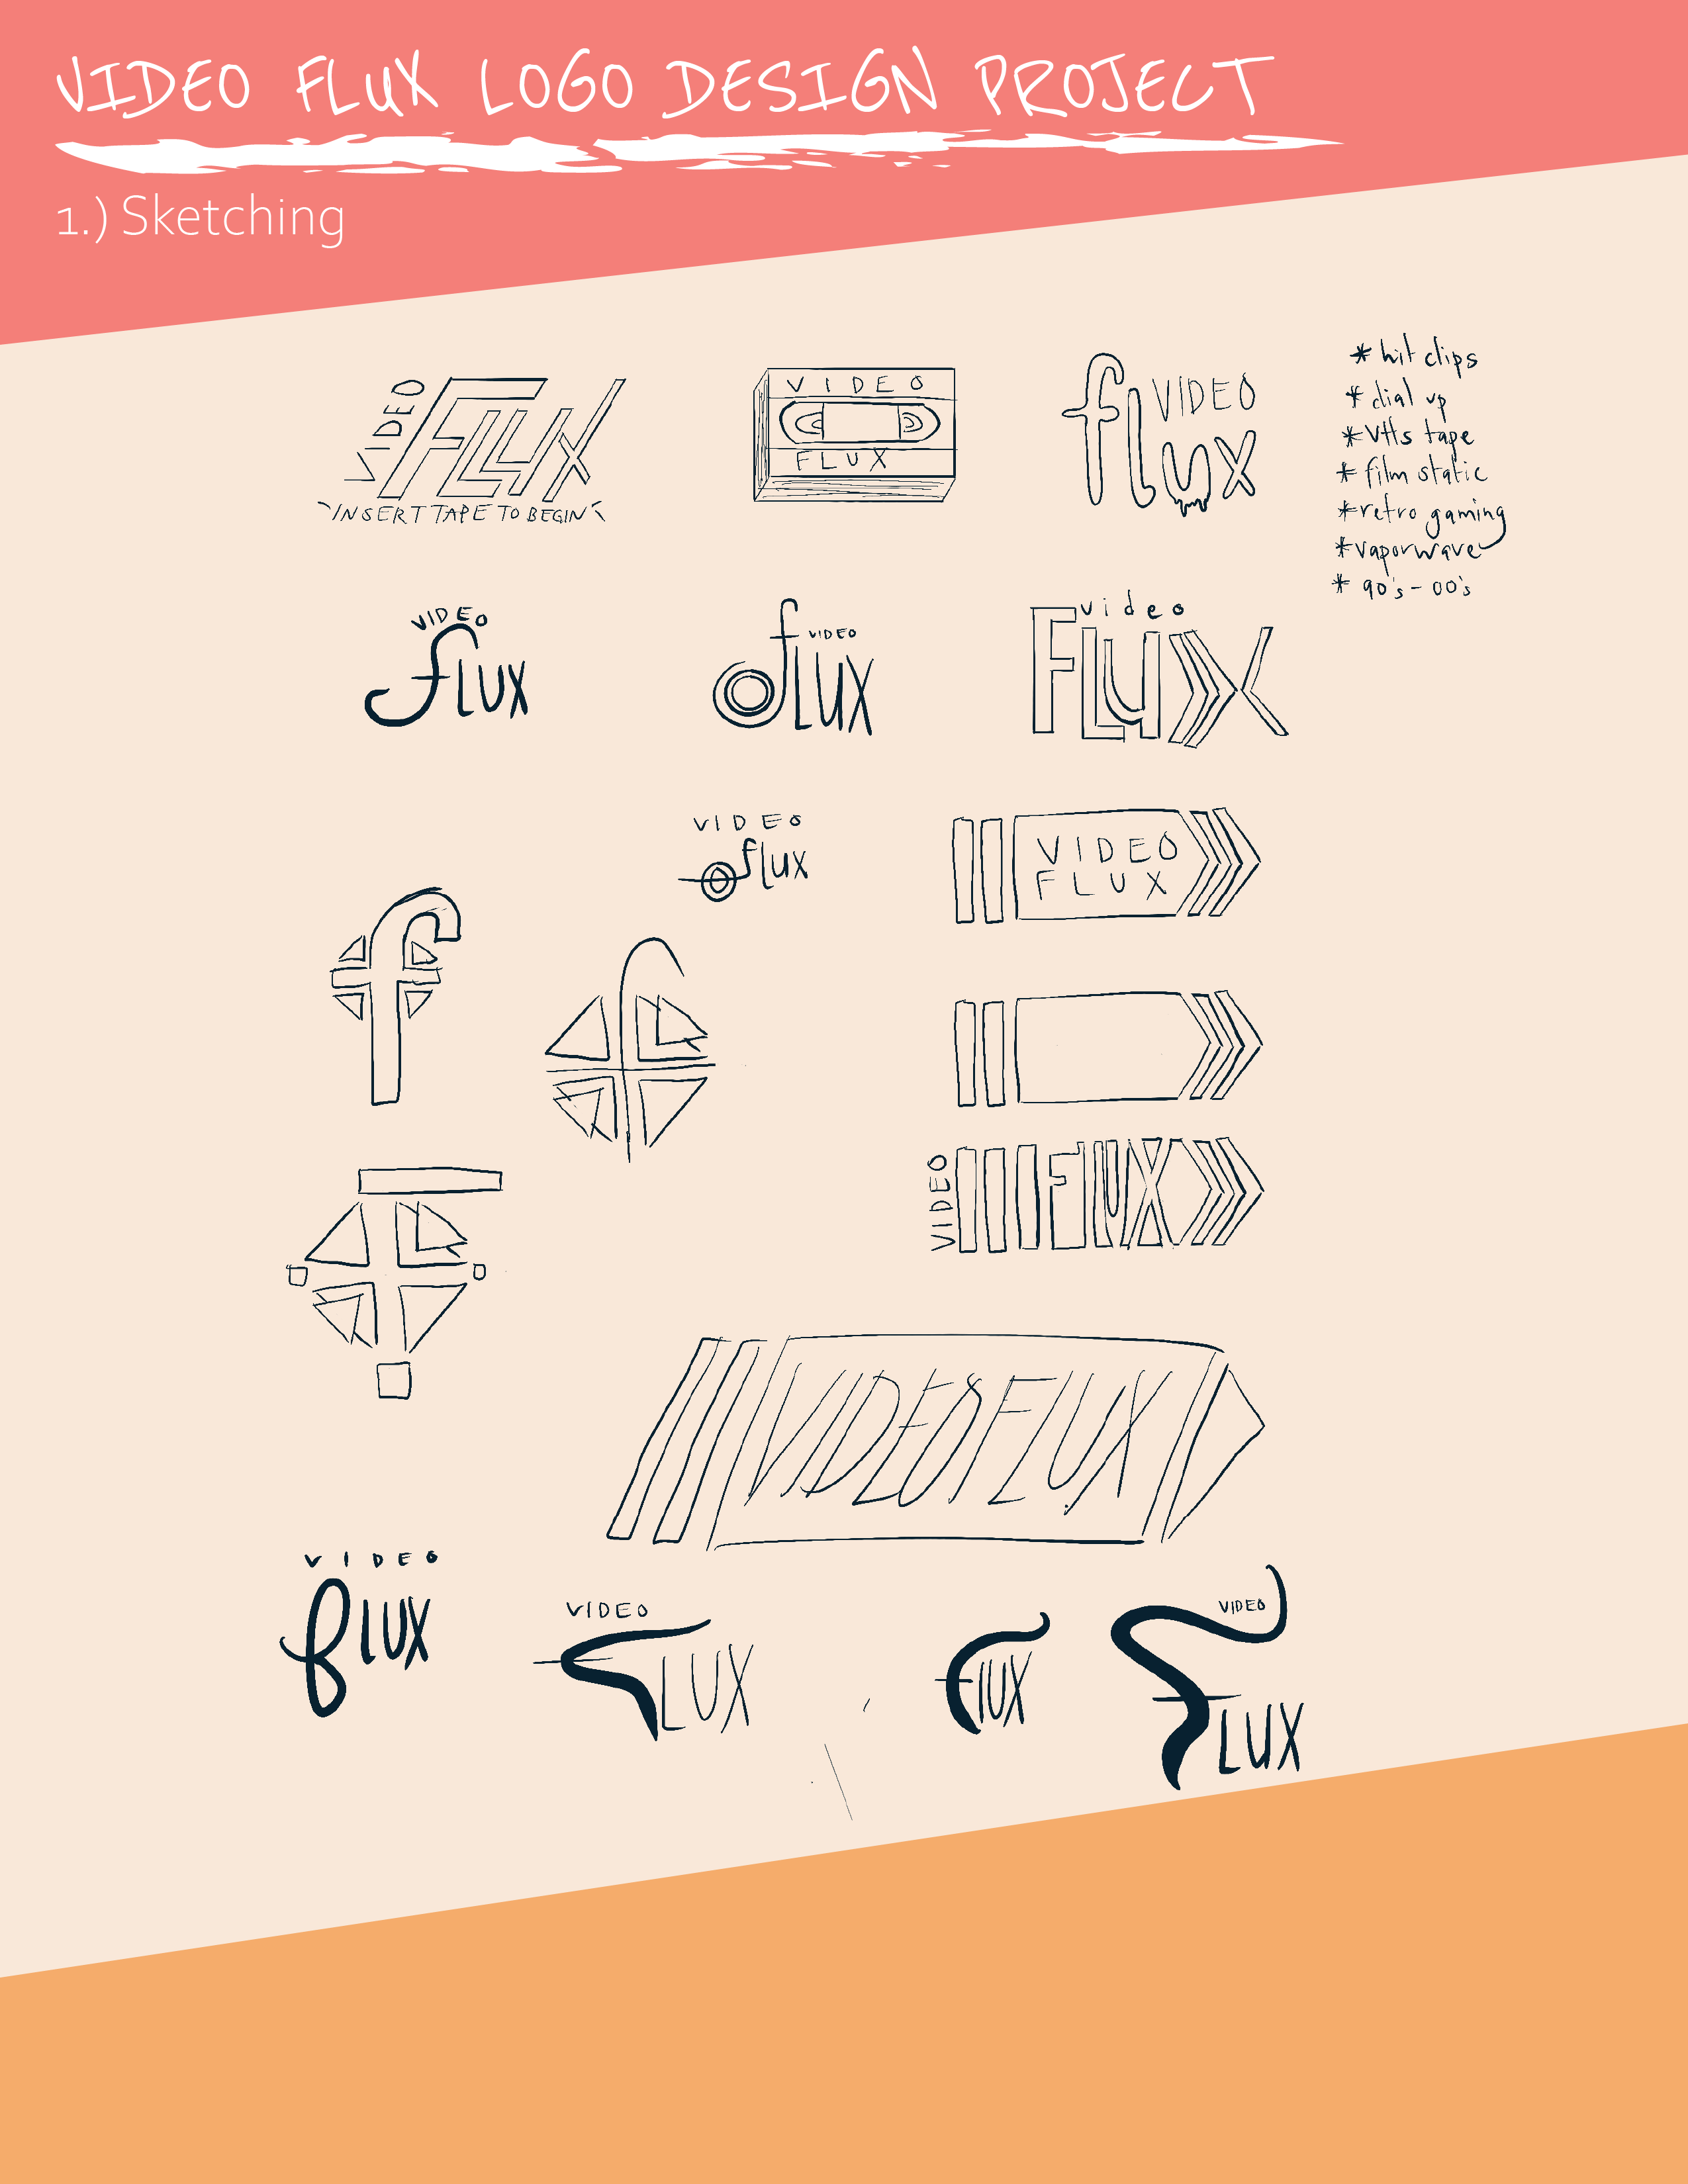 VIDEO FLUX LOGO DESIGN PROJECT
1.) Sketching
VIDEO
FLUX
INSERT TAPE TO BEGIN
VIDEO
FLUX
VIDEO
flux
* hit clips
* dial up
* VHS tape
* film static
* retro gaming
* vaporwave
* 90's - 00's
VIDEO
fLUX
VIDEO
fLUX
video
FLUX
VIDEO
flux
VIDEO
FLUX
f
f
VIDEO
FLUX
VIDEOFLUX
VIDEO
fLUX
VIDEO
FLUX
FLUX
VIDEO
FLUX